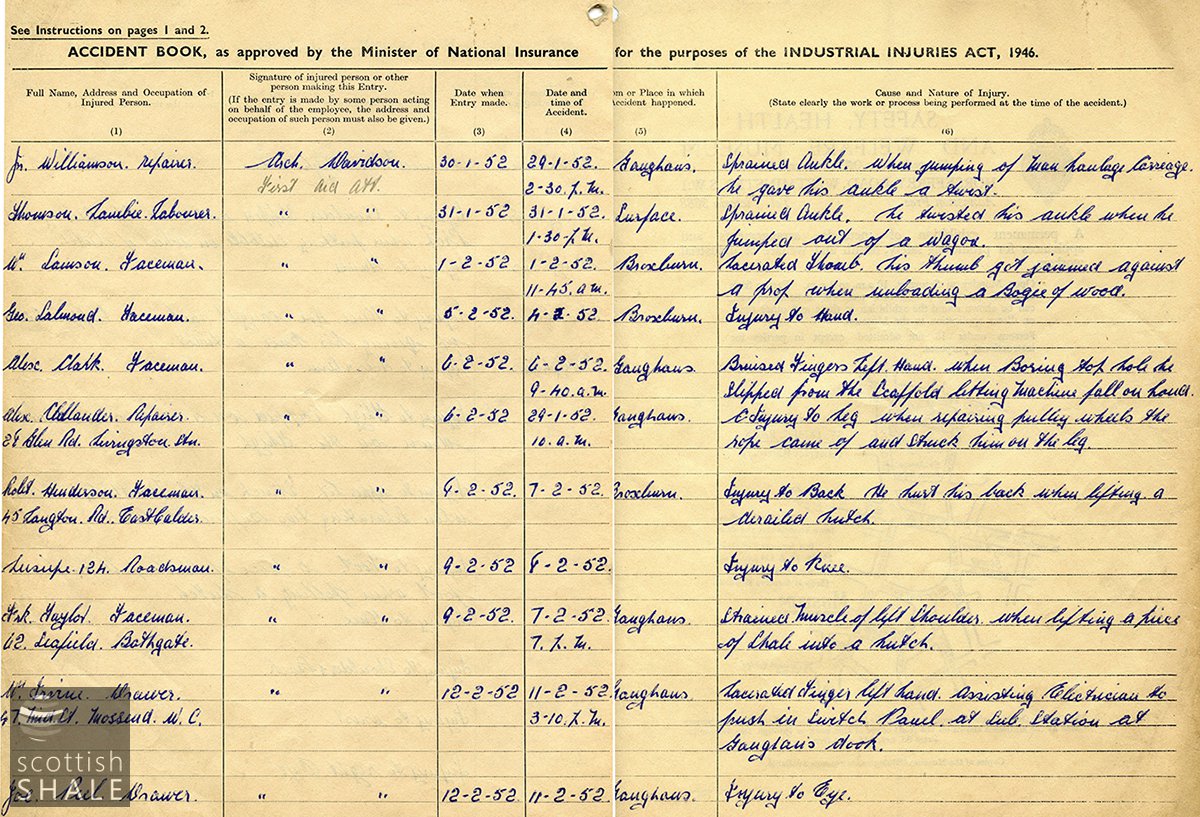 See Instructions on pages 1 and 2.
ACCIDENT BOOK, as approved by the Minister of National Insurance for the purposes of the INDUSTRIAL INJURIES ACT, 1946.
Full Name, Address and Occupation of Injured Person.
(1)
Signature of injured person or other person making this Entry.
(If the entry is made by some person acting on behalf of the employee, the address and occupation of such person must also be given.)
(2)
Date when Entry made.
(3)
Date and time of Accident.
(4)
om or Place in which Accident happened.
(5)
Cause and Nature of Injury.
(State clearly the work or process being performed at the time of the accident.)
(6)
Jn. Williamson. repairer. Arch. Davidson. 30-1-52 29-1-52. Gaughans. Sprained Ankle. when jumping of man haulage carreage.
First aid att. 2-30. P.M. he gave his ankle a twist.
Thomson. Lambie. Labourer. " " 31-1-52 31-1-52 Surface. Sprained Ankle. he twisted his ankle when he
1-30-P.M. jumped out of a wagon.
Wm Lamson. Faceman. " " 1-2-52 1-2-52 Broxburn. Lacerated Thomb. his thumb got jammed against
11-45. a.m. a prop when unloading a Bogie of wood.
Geo. Salmond. Faceman. " " 5-2-52. 4-2-52. Broxburn. Injury to Hand.
Alex. Clark. Faceman. " " 6-2-52 6-2-52 Gaughans. Bruised Fingers Left. Hand. when Boring top hole he
9-40. a.m. Slipped from the Scaffold letting Machine fall on hand.
Alex. Repairer. " " 6-2-52 29-1-52. Gaughans. Injury to leg when repairing pulley wheels the
Rd. Livingston Stn. 10. a.m. rope came of and struck him on the leg.
Robt. Henderson. Faceman. " " 6-2-52. 7-2-52. Broxburn. Injury to Back He hurt his back when lifting a
45 Langton. Rd. East Calder. derailed hutch.
124. Roadsman. " " 9-2-52 6-2-52. Injury to Knee.
Frk. Taylor. Faceman. " " 9-2-52 7-2-52 Gaughans. Strained Muscle of left Shoulder. when lifting a piece
62. Seafield. Bathgate. 7. P.M. of Shale into a hutch.
Wm Irvine. Drawer. " " 12-2-52 11-2-52 Gaughans. Lacerated Finger left hand. assisting Electrician to
Mossend. W.C. 3-10. P.M. push in Switch Panel. at Sub. Station at
Gaughans dook.
Drawer. " " 12-2-52 11-2-52 Gaughans. Injury to Eye.
scottish
SHALE